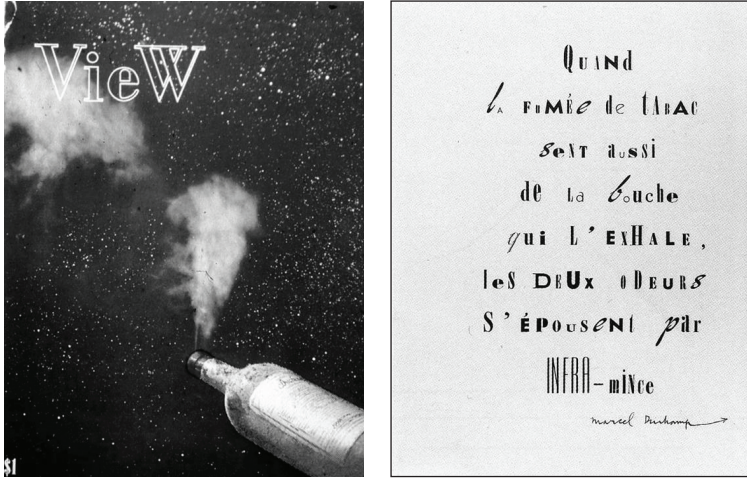 VieW
$1
QuANd
lA FuMÉe de tABAC
seNT aussi
de La bouche
qui L'EXHALE,
leS DEUx ODEURs
S'ÉPOusENt par
INFRA-miNce
marcel Duchamp